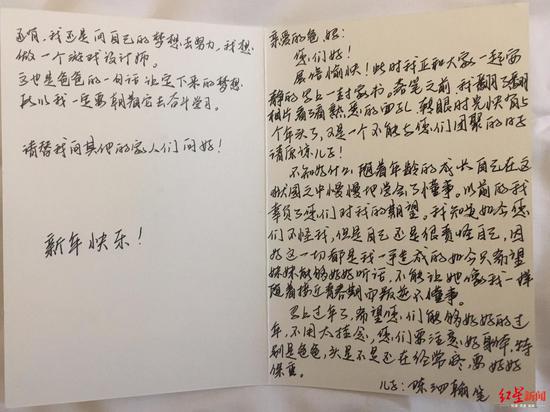 亲爱的爸妈：
您们好！
展信愉快！此时我正和大家一起安
静的写上一封家书。落笔之前我翻了翻
相片看了看熟悉的面孔 转眼时光快有
个年头了，又是一个不能与您们团聚的日子
请原谅儿子！
不知为什么随着年龄的成长自己在这
之中慢慢地学会了懂事。以前的我
辜负了您们对我的期望。我知道如今您
们不怪我，但是自己还是很责怪自己，因
为这一切都是我一手造成的如今只希望
妹妹能够好好听话，不能让她像我一样
随着接近青春期而叛逆不懂事。
马上过年了，希望您们能够好好的过
年，不用太挂念，您们要注意好身体，特
别是爸爸，头是不是还在经常疼，要好好
保重。
儿子：陈泗翰笔
还有，我还是向自己的梦想去努力，我想
做一个游戏设计师。
这也是爸爸的一句话让定下来的梦想
所以我一定要朝着它去奋斗
请替我向其他的家人们问好！
新年快乐！
红星新闻